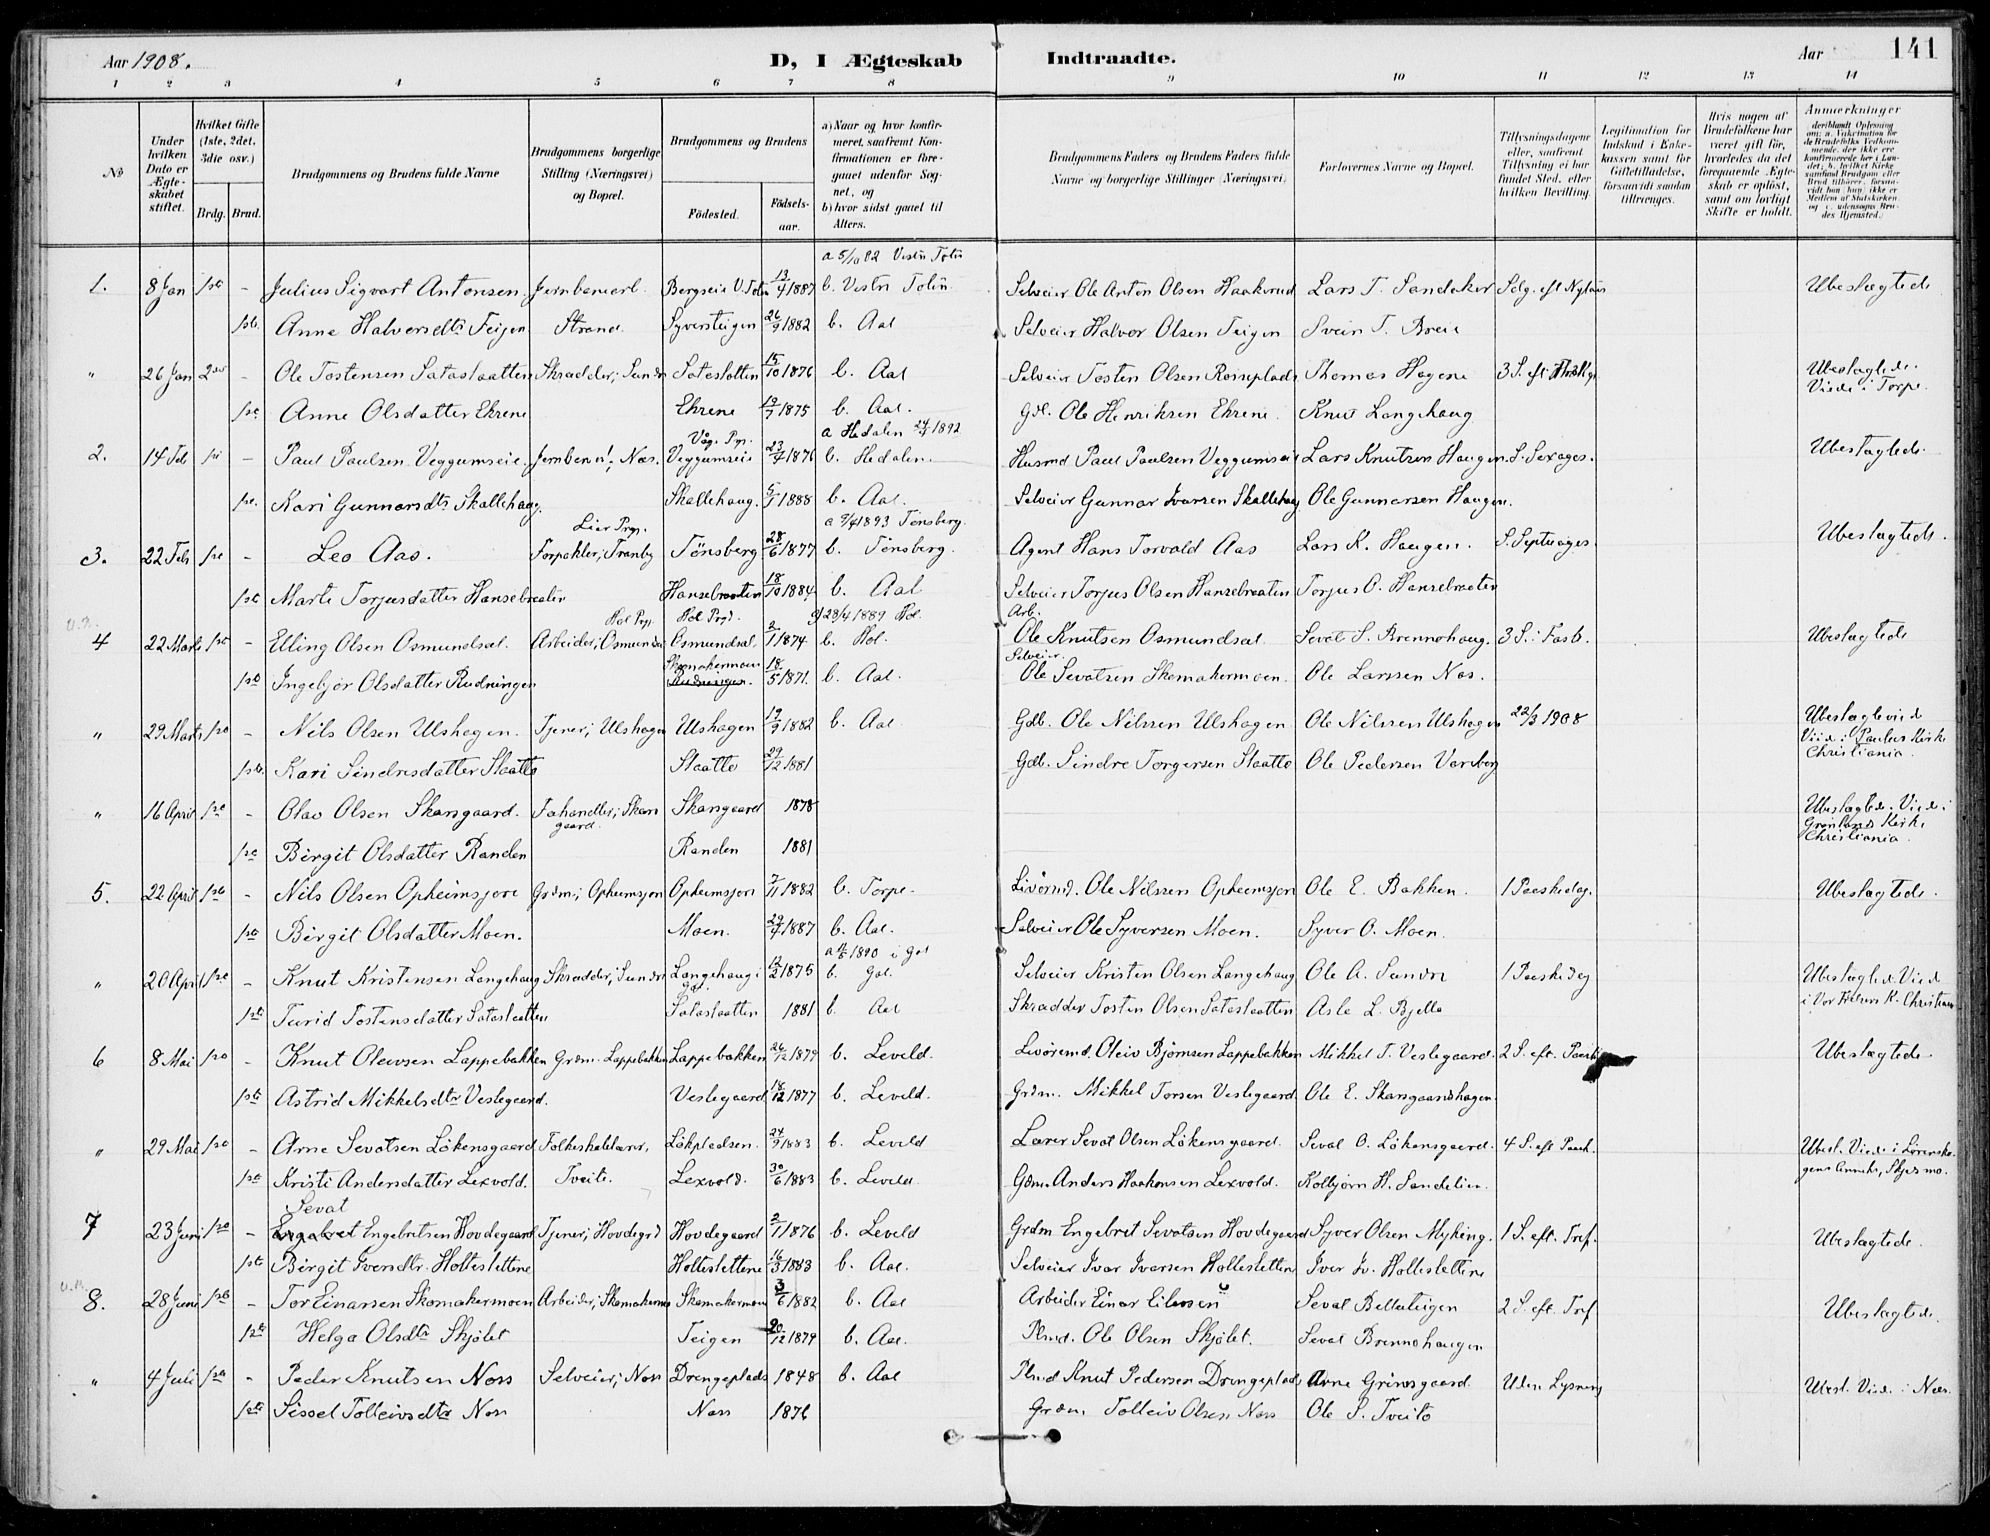 Aar 1908. D, I Ægteskab Indtraadte. Aar 141
1 2 3 4 5 6 7 8 9 10 11 12 13 14
No
Under hvilken Dato er Ægteskabet stiftet.
Hvilket Gifte (1ste, 2det, 3die osv.)
Brdg. Brud.
Brudgommens og Brudens fulde Navne
Brudgommens borgerlige Stilling (Næringsvei) og Bopæl.
Brudgommens og Brudens
Födested. Födselsaar.
a) Naar og hvor konfirmeret, saafremt Konfirmationen er foregaaet udenfor Sognet, og b) hvor sidst gaaet til Alters.
Brudgommens Faders og Brudens Faders fulde Navne og borgerlige Stillinger (Næringsvei)
Forlovernes Navne og Bopæl.
Tillysningsdagene eller, saafremt Tillysning ei har fundet Sted, efter hvilken Bevilling.
Legitimation for Indskud i Enkekassen samt for Giftetilladelse, forsaavidt saadan tiltrænges.
Hvis nogen af Brudefolkene har været gift før, hvorledes da det foregaaende Ægteskab er oplöst, samt om lovligt Skifte er holdt.
Anmærkninger deriblandt Oplysning om: a. Vakcination for de Brudefolks Vedkommende, der ikke ere konfirmerede her i Landet; b. hvilket Kirkesamfund Brudgom eller Brud tilhörer, forsaavidt han (hun) ikke er Medlem af Statskirken og c. udensogns Brudes Hjemsted.
a 5/10 82 Vestre Toten
1. 8 Jan 1ste - Julius Sigvart Antonsen. Jernbanearb. Bergseie V. Toten 13/4 1887 b. Vestre Toten Selveier Ole Anton Olsen Haakerud Lars T. Sandaker Sdg. eft Nytaar Ubeslægtede
1ste Anne Halvorsdtr Teigen Strand Syversteigen 26/9 1882 b. Aal Selveier Halvor Olsen Teigen Svein T. Breie
" 26 Jan 2det - Ole Tostensen Sataslaatten Skrædder, i Sundre Sataslatten 15/10 1876 b. Aal Selveier Tosten Olsen Roiseplads Thomas Hagene 3 S. eft Ubeslægtede. Viede i Torpe.
1ste Anne Olsdatter Ehrene Ehrene 19/7 1875 b. Aal. Gdb. Ole Henriksen Ehrene. Knut Langehaug
Våge Pgr. a Hedalen 24/4 1892
2. 14 Feb 1ste - Paul Paulsen Veggumseie Jernbanea., Næs. Veggumseie 23/4 1876 b. Hedalen. Husmd Paul Paulsen Veggumseie Lars Knutsen Haugen. S. Sexages. Ubeslægtede.
1ste. Kari Gunnarsdtr Skallehaug. Skallehaug. 5/1 1888 b. Aal. Selveier Gunnar Ivarsen Skallehaug Ole Gunnarsen Haugen.
Lier Prgj. a 9/4 1893 Tönsberg.
3. 22 Feb 1ste - Leo Aas. Forpakter, Tranby Tönsberg 28/6 1877 b. Tönsberg. Agent Hans Torvald Aas Lars K. Haugen. S. Septuages. Ubeslægtede.
1ste Marte Torjusdatter Hansebraaten Hansebraaten 18/10 1884 b. Aal Selveier Torjus Olsen Hansebraaten Torjus O. Hansebraaten
Hol Prgj. Hol Prgj. a/ 28/4 1889 Hol. Arb.
4 22 Marts 1ste - Elling Olsen Osmundsal. Arbeider, Osmundsal Osmundsal. 2/1 1874 b. Hol. Ole Knutsen Osmundsal Seval S. Brennohaug. 3 S. i Fast. Ubeslægtede
Skomakermoen Selveier.
1ste Ingebjör Olsdatter Rudningen Rudningen. 18/5 1871. b. Aal. Ole Sevalsen Skomakermoen. Ole Larssen Næs.
" 29 Marts 1ste - Nils Olsen Ulshagen. Tjener, Ulshagen Ulshagen 19/9 1882 b. Aal Gdb. Ole Nilssen Ulshagen Ole Nilssen Ulshagen 22/3 1908 Viede i Paulus Kirke Christiania.
1ste. Kari Sindresdatter Slaatto Slaatto 29/12 1881 Gdb. Sindre Torgersen Slaatto Ole Pedersen Varberg
" 16 April 1ste - Olav Olsen Skarsgaard. Fæhandler, Skarsgaard. Skarsgaard 1878 Ubeslægtede. Viede i Grönlands Kirke Christiania.
1ste Birgit Olsdatter Randen Randen 1881
5. 22 April 1ste - Nils Olsen Opheimsjore Grdm. i Opheimsjor Opheimsjore 7/11 1882 b. Torpe. Livörmd. Ole Nilssen Opheimsjor Ole E. Bakken. 1 Paaskedag. Ubeslægtede.
1ste Birgit Olsdatter Moen. Moen. 29/4 1887 b. Aal. Selveier Ole Syversen Moen. Syver O. Moen.
" 20 April 1ste - Knut Kristensen Langehaug Skrædder, i Sundre Langehaug i Gol. 12/2 1875 a 1890 i Gol b. Gol. Selveier Kristen Olsen Langehaug Ole A. Sundre 1 Paaskedag Ubeslægtede. Viede i Vor Frelsers K. Christiania
1ste Turid Tostensdatter Sataslaatten Sataslaatten 1881 b. Aal Skrædder Tosten Olsen Sataslaatten Asle L. Bjella
6 8 Mai 1ste - Knut Oleivsen Lappebakken Grdm. Lappebakken Lappebakken 26/12 1879 b. Leveld. Livöremd. Oleiv Björnsen Lappebakken Mikkel T. Veslegaard. 2 S. eft. Paaske Ubeslægtede.
1ste Astrid Mikkelsdtr Veslegaard. Veslegaard 18/12 1877 b. Leveld. Grdm. Mikkel Torsen Veslegaard Ole E. Skarsgaardshagen.
" 29 Mai 1ste - Arne Sevatsen Lökensgaard Folkeskolelærer, Lökpladsen. 24/9 1883 b. Leveld Lærer Sevat Olsen Lökensgaard. Seval O. Lökensgaard. 4 S. eft Paask. Ubesl. Viede i Lörenskogens Anneks, Skjedsmo.
1ste Kristi Andersdatter Lexvold. Tveito. Lexvold. 30/6 1883 b. Leveld. Grdm. Anders Haakonsen Lexvold. Kolbjörn H. Sandelien.
Sevat
7 23 Juni 1ste - Engebret Engebretsen Hovdegaard Tjener, Hovdegrd Hovdegaard 2/1 1876 b. Leveld Grdm Engebret Sevatsen Hovdegaard Syver Olsen Myking. 1 S. eft. Tref. Ubeslægtede.
1ste Birgit Iversdtr. Holteslettene Holteslettene 16/3 1883 b. Aal. Selveier Ivar Ivarsen Holteslettene Iver Iv. Holteslettene
8. 28 Juni 1ste - Tor Einarsen Skomakermoen Arbeider, Skomakermo Skomakermoen 3/6 1882 b. Aal Arbeider Einar Eilevsen Seval Bellateigen 2 S. eft. Tref Ubeslægtede.
1ste Helga Olsdtr Skjölet Teigen 20/12 1879 b. Aal. Plmd. Ole Olsen Skjölet. Seval Brennohaugen
" 4 Juli 1ste - Peder Knutsen Noss Selveier, Noss Drengeplads 1848 b. Aal Plmd Knut Pedersen Drengeplads Arne Grimsgaard Uden Lysning Ubesl. Viede i Næs.
1ste Sissel Tolleivsdtr Noss Noss 1876 Grdm. Tolleiv Olsen Noss Ole S. Tveito